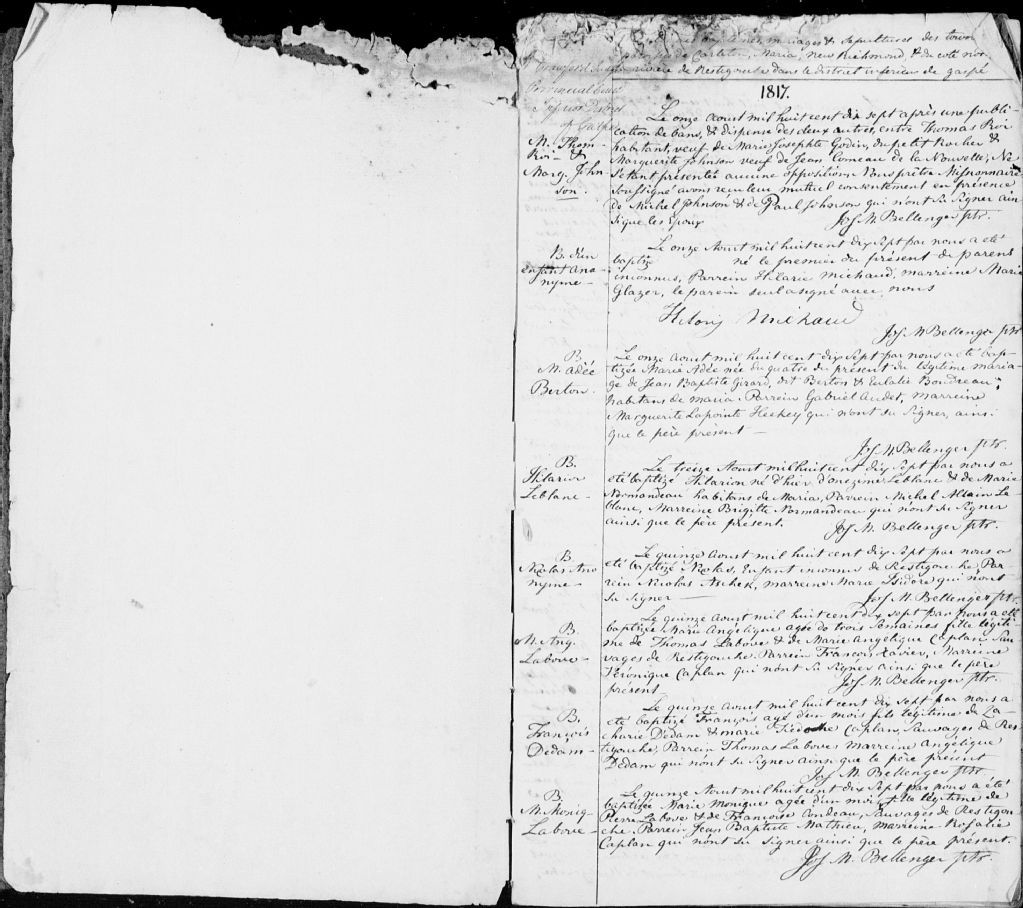 mariages & sepultures des
de Carleton, Maria, New Richmond, & du coté nor
rivière de Restigouche dans le district inferieur de gaspé
Provincial Court
Inferior District
of Gaspé
1817.
M. Thom-
Roi &
Marg. John
son.
Le onze Aoust mil huit cent dix sept après une publi
cation de bans, & dispense des deux autres, entre Thomas Roi
habitant, veuf de Marie Josephte Godin, du petit Rocher &
Marguerite Johnson veuf de Jean Comeau de la Nouvelle, Ne
S'etant présenté aucune opposition Nous prêtre Missionnaire
Soussigné avons reçu leur mutuel consentement en présence
de Michel Johnson & de Paul Johnson qui n'ont su Signer ain
si que les Epoux
Jos. M. Bellenger ptr.
B. d'un
enfant ano-
nyme-
Le onze Aoust mil huit cent dix Sept par nous a eté
baptizé né le premier du présent de parens
inconnus, Parrein Hilarie Michaud, marreine Marie
Glazer, le parein seul a signé avec nous
Hilary Michaud
Jos. M Bellenger ptr
B.
M. Adée
Berton.
Le onze Aoust mil huit cent dix sept par nous a eté bap-
tizée Marie Adée née du quatre du présent du légitime maria-
ge de Jean Baptiste Girard, dit Berton & Eulalie Boudreau,
habitans de maria. Parrein Gabriel Audet, marreine
Marguerite Lapointe Heckey qui n'ont su Signer, ainsi
que le père présent —
Jos. M. Bellenger ptr.
B.
Hilarion
Leblanc-
Le treize Aoust mil huit cent dix Sept par nous a
eté baptizé Hilarion né d'hier d'onezime Leblanc & de Marie
Normandeau habitans de Maria, Parrein Michel Alain Le-
blanc, Marreine Brigitte Normandeau qui n'ont su Signer
ainsi que le père présent.
Jos M. Bellenger ptr.
B
Nicolas Ano
nyme-
Le quinze Aoust mil huit cent dix Sept par nous a
eté baptizé Nicolas, Enfant inconnu de Restigouche, Par-
rein Nicolas, marreine Marie Isidore qui n'ont
su Signer —
Jos M. Bellenger ptr.
B.
M. Ang.
Labove-
Le quinze Aoust mil huit cent dix sept par nous a eté
baptizée Marie Angélique agée de trois semaines fille légiti-
me de Thomas Labove & de Marie Angélique Caplan Sau-
vages de Restigouche. Parrein François Xavier, Marreine
Véronique Caplan qui n'ont su Signer ainsi que le père
présent
Jos M. Bellenger ptr.
B.
François
Dedam-
Le quinze Aoust mil huit cent dix Sept par nous a
eté baptizé François agé d'un mois fils légitime de Za-
charie Dedam & marie Caplan, Sauvages de Res-
tigouche, Parrein Thomas Labove Marreine Angélique
Dedam qui n'ont su Signer ainsi que le père présent
Jos M. Bellenger ptr.
B.
M. Moniq
Labove-
Le quinze Aoust mil huit cent dix Sept par nous a été
baptizée Marie Monique agée d'un mois fille légitime de
Pierre Labove & de Françoise Condeau, Sauvages de Restigou-
che. Parrein Jean Baptiste Mathieu, Marreine Rosalie
Caplan qui n'ont su Signer ainsi que le père présent.
Jos M. Bellenger ptr.